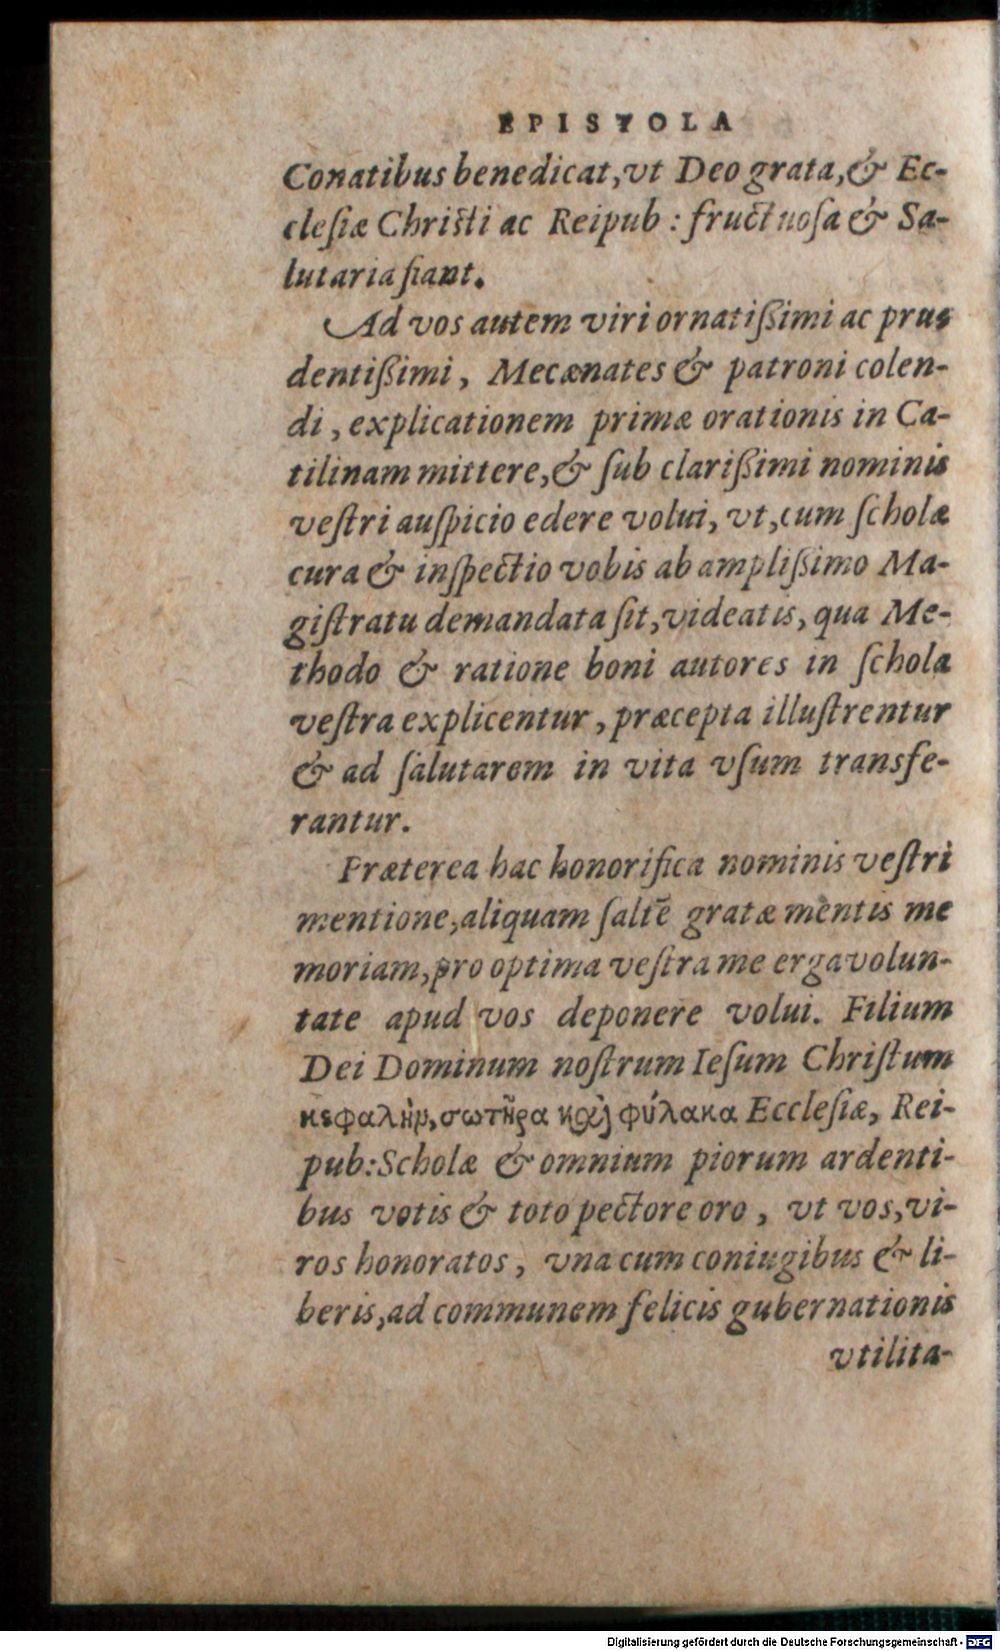 EPISTOLA
Conatibus benedicat, vt Deo grata, & Ec-
clesiæ Christi ac Reipub: fructuosa & Sa-
lutaria fiant.
Ad vos autem viri ornatißimi ac pru-
dentißimi, Mecænates & patroni colen-
di, explicationem primæ orationis in Ca-
tilinam mittere, & sub clarißimi nominis
vestri auspicio edere volui, vt, cum scholæ
cura & inspectio vobis ab amplißimo Ma-
gistratu demandata sit, videatis, qua Me-
thodo & ratione boni autores in schola
vestra explicentur, præcepta illustrentur
& ad salutarem in vita vsum transfe-
rantur.
Præterea hac honorifica nominis vestri
mentione, aliquam saltē gratæ mentis me
moriam, pro optima vestra me erga volun-
tate apud vos deponere volui. Filium
Dei Dominum nostrum Iesum Christum
κεφαλὴν, σωτῆρα καὶ φύλακα Ecclesiæ, Rei-
pub: Scholæ & omnium piorum ardenti-
bus votis & toto pectore oro, vt vos, vi-
ros honoratos, vna cum coniugibus & li-
beris, ad communem felicis gubernationis
vtilita-
Digitalisierung gefördert durch die Deutsche Forschungsgemeinschaft - DFG